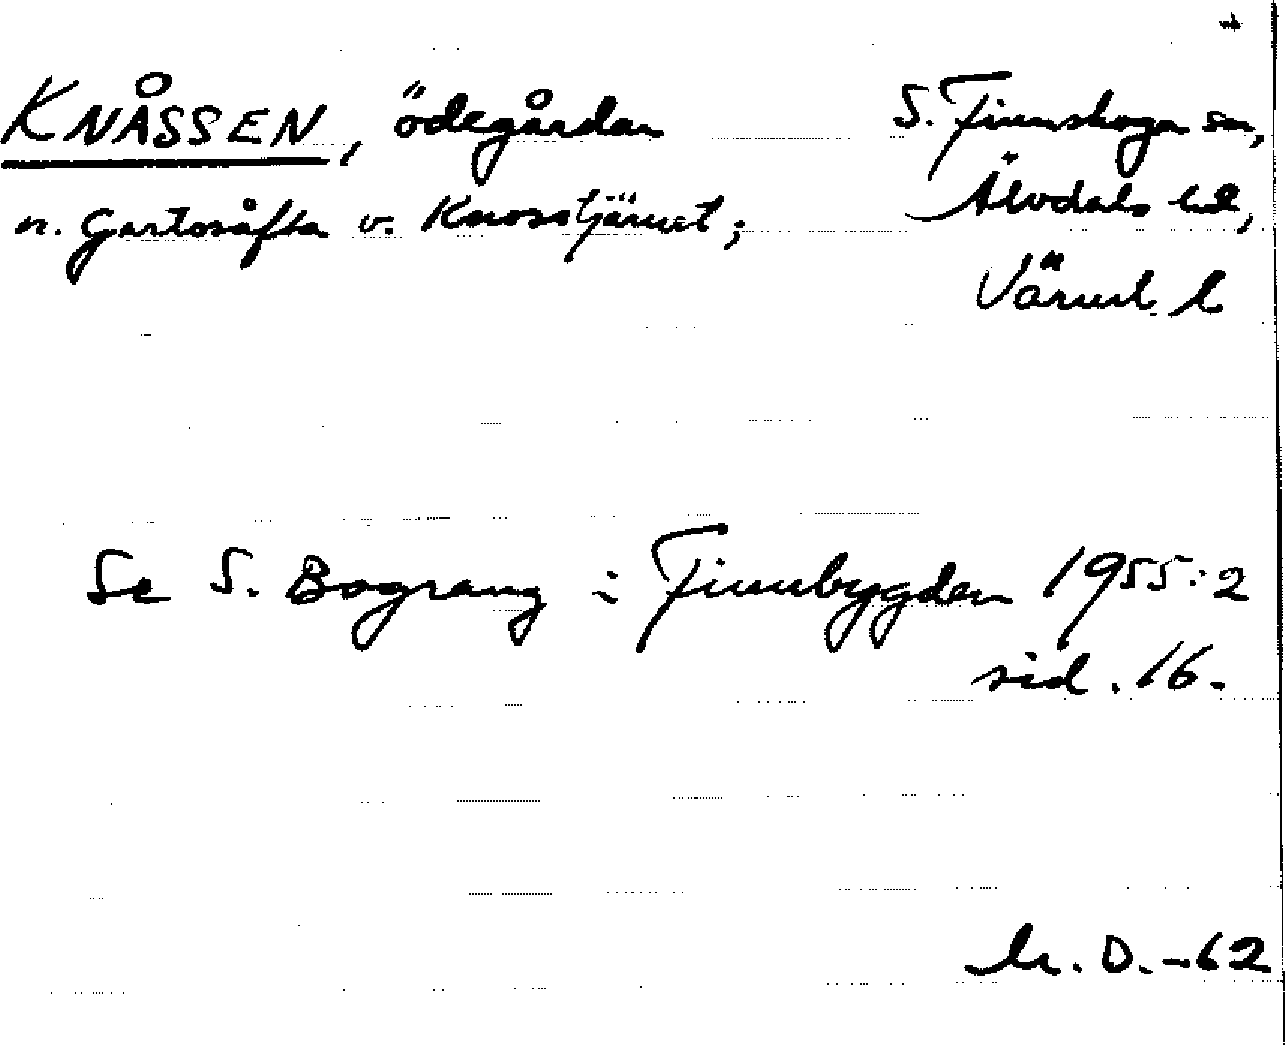 KNÅSSEN, ödegårdar
n. Gartosåfta v. Knosstjärnet;
S. Finnskoga sn,
Älvdals hd,
Värml. l
Se S. Bograng i Finnbygden 1955:2
sid. 16.
D. -62